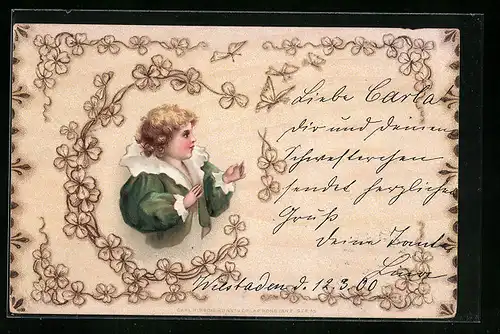 Liebe Carla
dir und deinem
Schwesterchen
sendet herzlichen
Gruß
deine Tante
d. 12.3.00